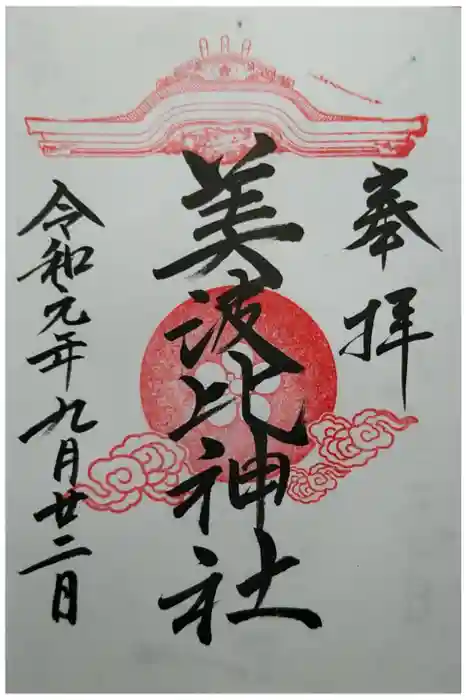 奉拝
美波比神社
令和元年九月廿二日